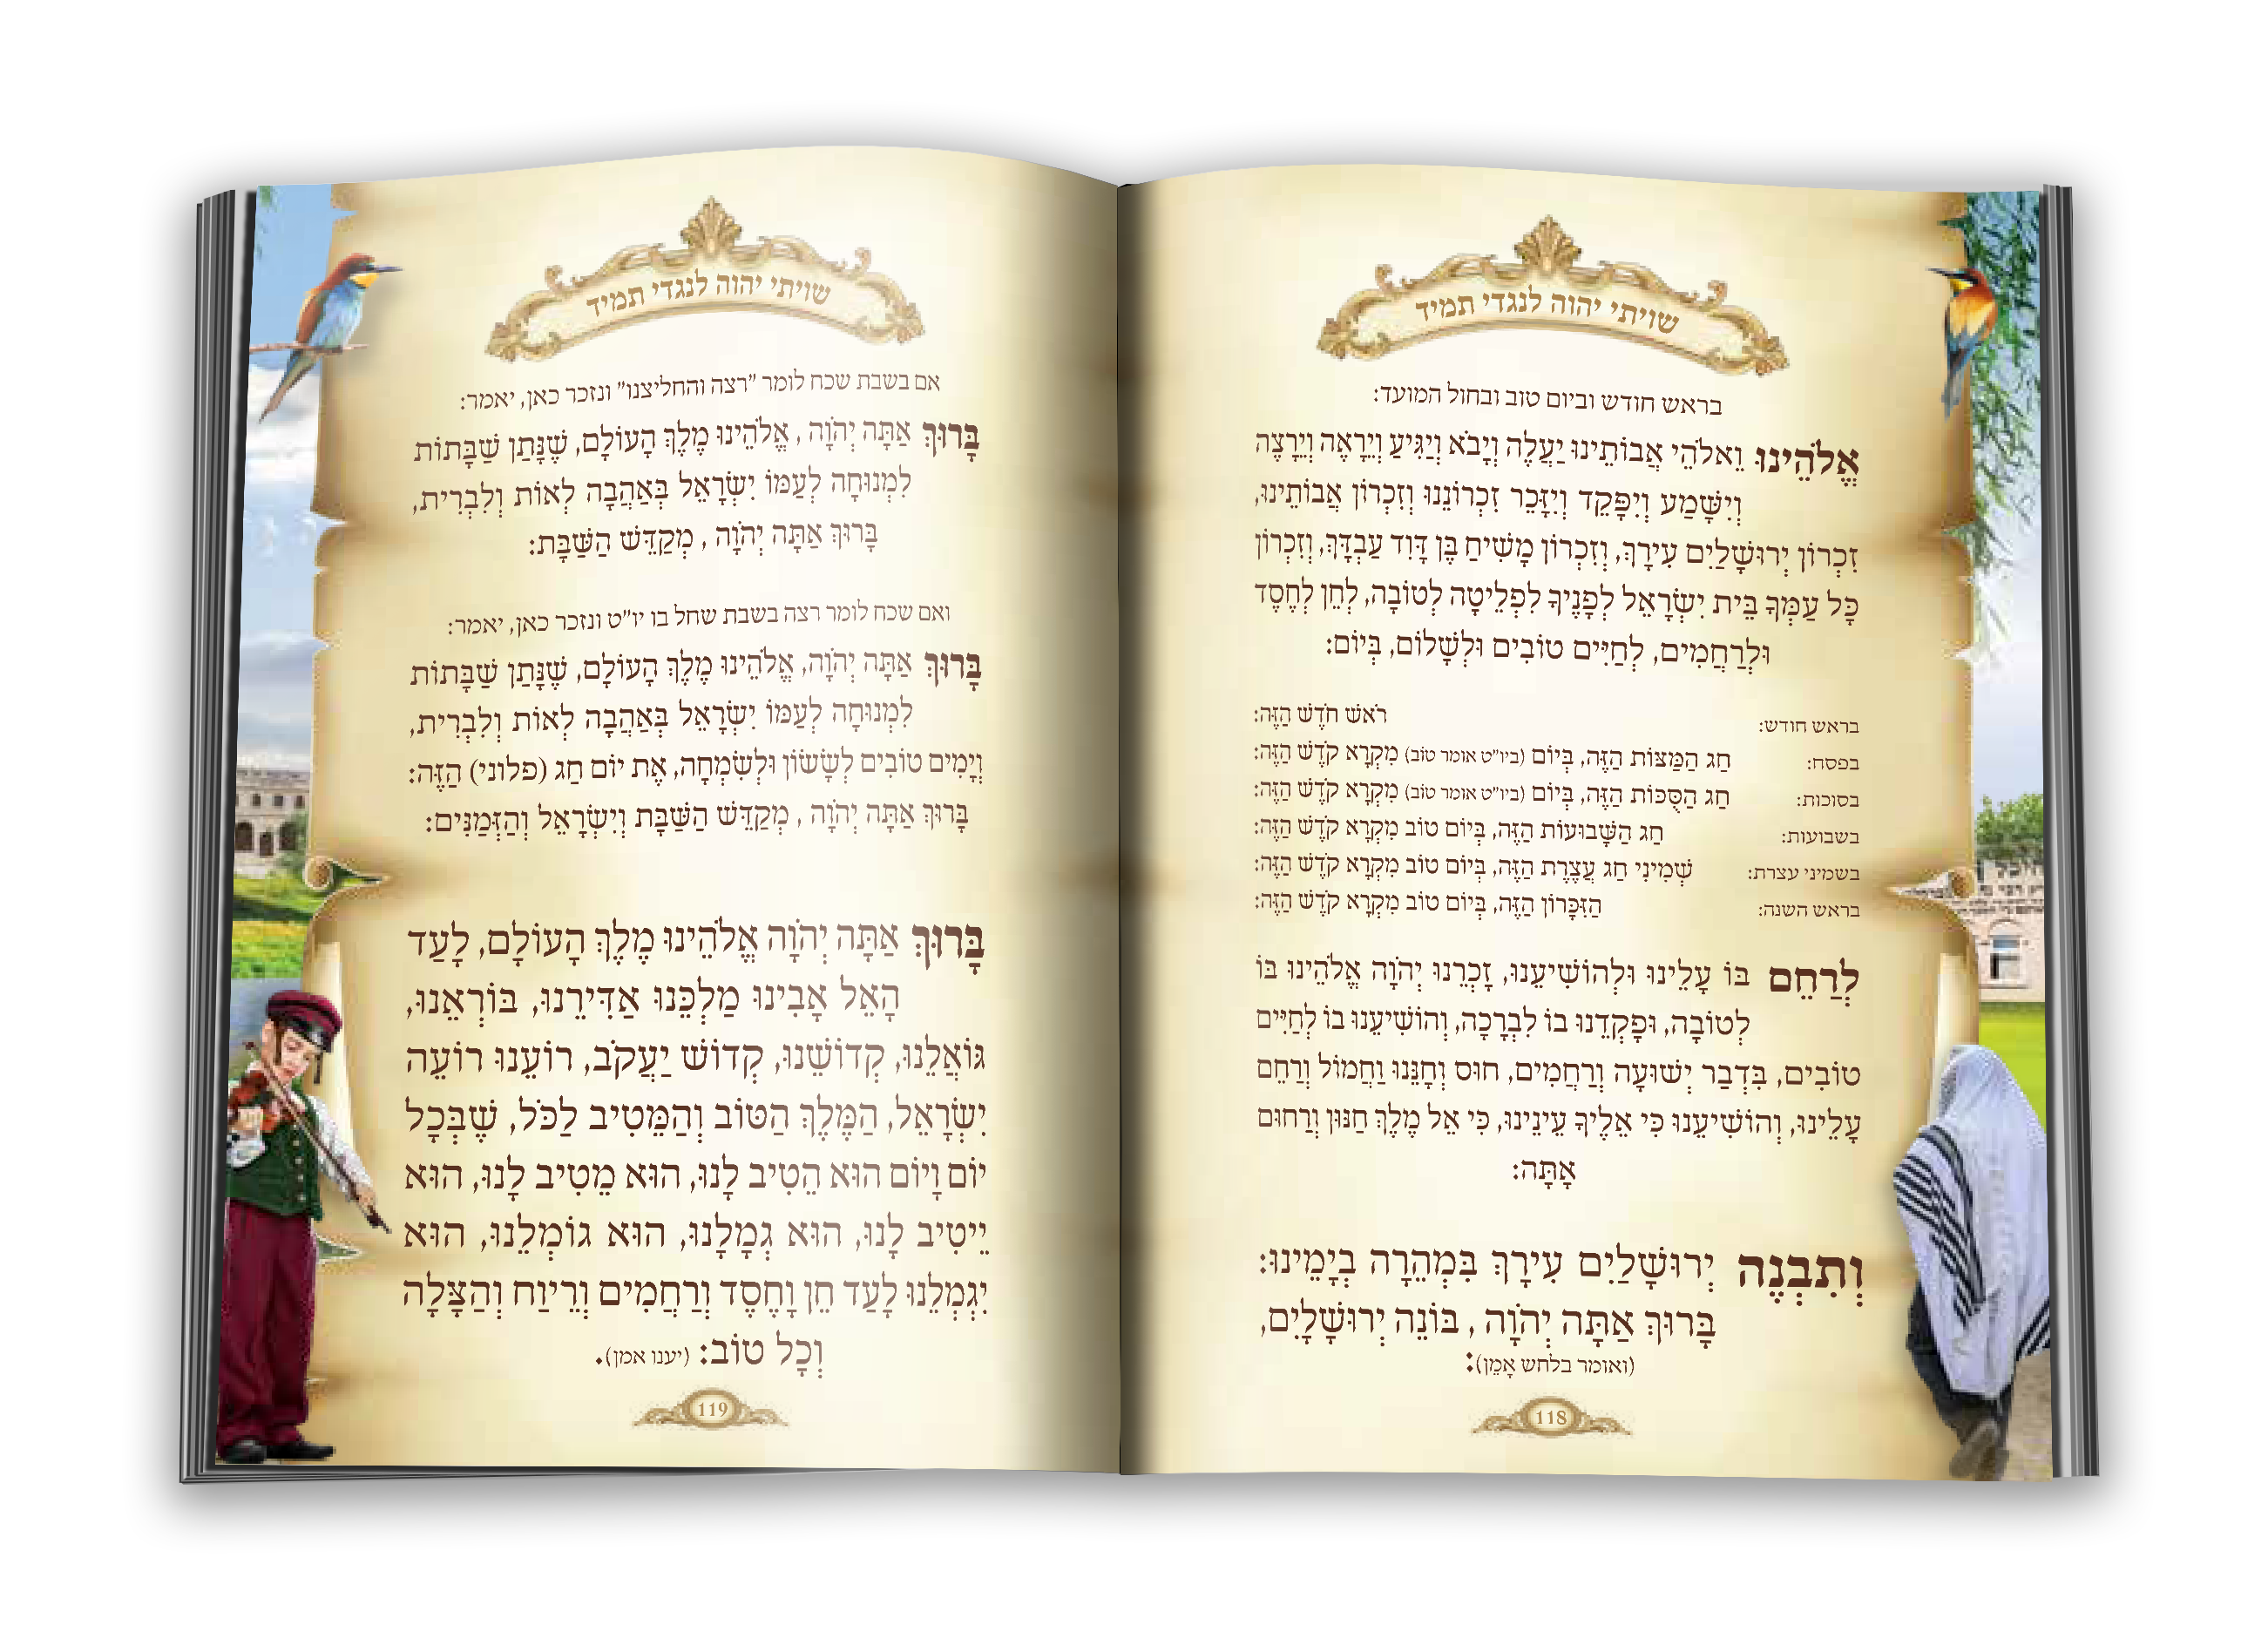 שויתי יהוה לנגדי תמיד
בראש חודש וביום טוב ובחול המועד:
אֱלֹהֵינוּ וֵאלֹהֵי אֲבוֹתֵינוּ יַעֲלֶה וְיָבֹא וְיַגִּיעַ וְיֵרָאֶה וְיֵרָצֶה
וְיִשָּׁמַע וְיִפָּקֵד וְיִזָּכֵר זִכְרוֹנֵנוּ וְזִכְרוֹן אֲבוֹתֵינוּ,
זִכְרוֹן יְרוּשָׁלַיִם עִירָךְ, וְזִכְרוֹן מָשִׁיחַ בֶּן דָּוִד עַבְדָּךְ, וְזִכְרוֹן
כָּל עַמְּךָ בֵּית יִשְׂרָאֵל לְפָנֶיךָ לִפְלֵיטָה לְטוֹבָה, לְחֵן לְחֶסֶד
וּלְרַחֲמִים, לְחַיִּים טוֹבִים וּלְשָׁלוֹם, בְּיוֹם:
בראש חודש: רֹאשׁ חֹדֶשׁ הַזֶּה:
בפסח: חַג הַמַּצּוֹת הַזֶּה, בְּיוֹם (ביו"ט אומר טוֹב) מִקְרָא קֹדֶשׁ הַזֶּה:
בסוכות: חַג הַסֻּכּוֹת הַזֶּה, בְּיוֹם (ביו"ט אומר טוֹב) מִקְרָא קֹדֶשׁ הַזֶּה:
בשבועות: חַג הַשָּׁבוּעוֹת הַזֶּה, בְּיוֹם טוֹב מִקְרָא קֹדֶשׁ הַזֶּה:
בשמיני עצרת: שְׁמִינִי חַג עֲצֶרֶת הַזֶּה, בְּיוֹם טוֹב מִקְרָא קֹדֶשׁ הַזֶּה:
בראש השנה: הַזִּכָּרוֹן הַזֶּה, בְּיוֹם טוֹב מִקְרָא קֹדֶשׁ הַזֶּה:
לְרַחֵם בּוֹ עָלֵינוּ וּלְהוֹשִׁיעֵנוּ, זָכְרֵנוּ יְהֹוָה אֱלֹהֵינוּ בּוֹ
לְטוֹבָה, וּפָקְדֵנוּ בוֹ לִבְרָכָה, וְהוֹשִׁיעֵנוּ בוֹ לְחַיִּים
טוֹבִים, בִּדְבַר יְשׁוּעָה וְרַחֲמִים, חוּס וְחָנֵּנוּ וַחֲמוֹל וְרַחֵם
עָלֵינוּ, וְהוֹשִׁיעֵנוּ כִּי אֵלֶיךָ עֵינֵינוּ, כִּי אֵל מֶלֶךְ חַנּוּן וְרַחוּם
אָתָּה:
וְתִבְנֶה יְרוּשָׁלַיִם עִירָךְ בִּמְהֵרָה בְיָמֵינוּ:
בָּרוּךְ אַתָּה יְהֹוָה, בּוֹנֵה יְרוּשָׁלָיִם,
(ואומר בלחש אָמֵן):
118
שויתי יהוה לנגדי תמיד
אם בשבת שכח לומר "רצה והחליצנו" ונזכר כאן, יאמר:
בָּרוּךְ אַתָּה יְהֹוָה, אֱלֹהֵינוּ מֶלֶךְ הָעוֹלָם, שֶׁנָּתַן שַׁבָּתוֹת
לִמְנוּחָה לְעַמּוֹ יִשְׂרָאֵל בְּאַהֲבָה לְאוֹת וְלִבְרִית,
בָּרוּךְ אַתָּה יְהֹוָה, מְקַדֵּשׁ הַשַּׁבָּת:
ואם שכח לומר רצה בשבת שחל בו יו"ט ונזכר כאן, יאמר:
בָּרוּךְ אַתָּה יְהֹוָה, אֱלֹהֵינוּ מֶלֶךְ הָעוֹלָם, שֶׁנָּתַן שַׁבָּתוֹת
לִמְנוּחָה לְעַמּוֹ יִשְׂרָאֵל בְּאַהֲבָה לְאוֹת וְלִבְרִית,
וְיָמִים טוֹבִים לְשָׂשׂוֹן וּלְשִׂמְחָה, אֶת יוֹם חַג (פלוני) הַזֶּה:
בָּרוּךְ אַתָּה יְהֹוָה, מְקַדֵּשׁ הַשַּׁבָּת וְיִשְׂרָאֵל וְהַזְּמַנִּים:
בָּרוּךְ אַתָּה יְהֹוָה אֱלֹהֵינוּ מֶלֶךְ הָעוֹלָם, לָעַד
הָאֵל אָבִינוּ מַלְכֵּנוּ אַדִּירֵנוּ, בּוֹרְאֵנוּ,
גּוֹאֲלֵנוּ, קְדוֹשֵׁנוּ, קְדוֹשׁ יַעֲקֹב, רוֹעֵנוּ רוֹעֵה
יִשְׂרָאֵל, הַמֶּלֶךְ הַטּוֹב וְהַמֵּטִיב לַכֹּל, שֶׁבְּכָל
יוֹם וָיוֹם הוּא הֵטִיב לָנוּ, הוּא מֵטִיב לָנוּ, הוּא
יֵיטִיב לָנוּ, הוּא גְמָלָנוּ, הוּא גוֹמְלֵנוּ, הוּא
יִגְמְלֵנוּ לָעַד חֵן וָחֶסֶד וְרַחֲמִים וְרֵיוַח וְהַצָּלָה
וְכָל טוֹב: (יענו אמן).
119